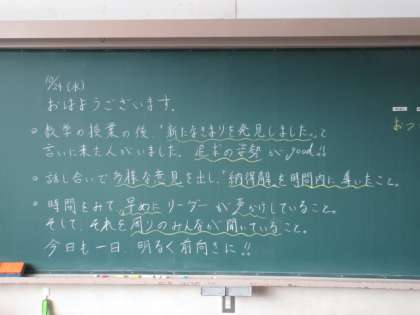 10/24(水)
おはようございます。
○ 数学の授業の後、「新たなきまりを発見しました。」と
言いに来た人がいました。追求の姿勢がgood!!
○ 話し合いで多様な意見を出し、「納得解」を時間内に導いたこと。
○ 時間をみて、早めにリーダーが声かけしていること。
そして、それを周りのみんなが聞いていること。
今日も一日、明るく前向きに!!
おつ